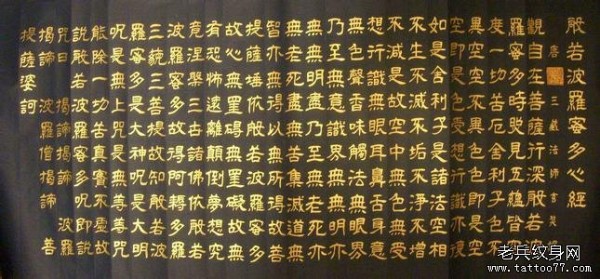 般若波羅密多心經
唐三藏法師玄奘
觀自在菩薩行深般若波
羅密多時照見五蘊皆空
度一切苦厄舍利子色不
異空空不異色色即是空
空即是色受想行識亦復
如是舍利子是諸法空相
不生不滅不垢不淨不增
不減是故空中無色無受
想行識無眼耳鼻舌身意
無色聲香味觸法無眼界
乃至無意識界無無明亦
無無明盡乃至無老死亦
無老死盡無苦集滅道無
智亦無得以無所得故菩
提薩埵依般若波羅密多
故心無罣礙無罣礙故無
有恐怖遠離顛倒夢想究
竟涅槃三世諸佛依般若
波羅密多故得阿耨多羅
三藐三菩提故知般若波
羅密多是大神呪是大明
呪是無上呪是無等等呪
能除一切苦真實不虛故
說般若波羅密多呪即說
呪曰 揭諦揭諦 波羅
揭諦 波羅僧揭諦 菩
提薩婆訶
老兵纹身网
www.tattoo77.com